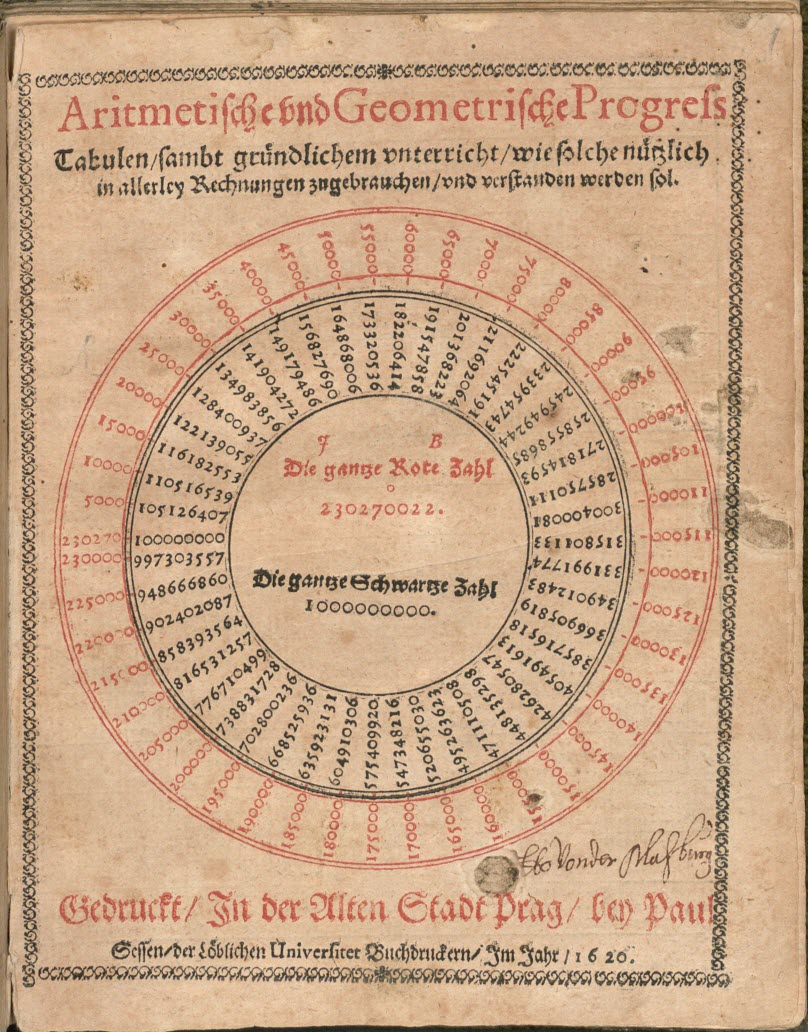 Aritmetische vnd Geometrische Progreſs
Tabulen/ſambt gründlichem vnterricht/wie ſolche nützlich
in allerley Rechnungen zugebrauchen/vnd verſtanden werden ſol.
5000
10000
15000
20000
25000
30000
35000
40000
45000
50000
55000
60000
65000
70000
75000
80000
85000
90000
95000
100000
105000
110000
115000
120000
125000
130000
135000
140000
145000
150000
155000
160000
165000
170000
175000
180000
185000
190000
195000
200000
205000
210000
215000
220000
225000
230000
230270
100000000
105126407
110516539
116182553
122139055
128400937
134983856
141904272
149179486
156827690
164868006
173320536
182206414
191547858
201368223
211692064
222545191
233954743
245949244
258558685
271814593
285750111
300400084
315801133
331991774
349012483
366905819
385716518
405491613
426280547
448135298
471110508
520655030
547348216
575409920
604910306
635923131
668525936
702800236
738831728
776710499
816531257
858393564
902402087
948666860
997303557
Die gantze Rote Zahl
o
230270022.
Die gantze Schwartze Zahl
1000000000.
Gedruckt/ In der Alten Stadt Prag/ bey Paul
Seſſen/der Löblichen Univerſitet Buchdruckern/ Im Jahr / 1620.